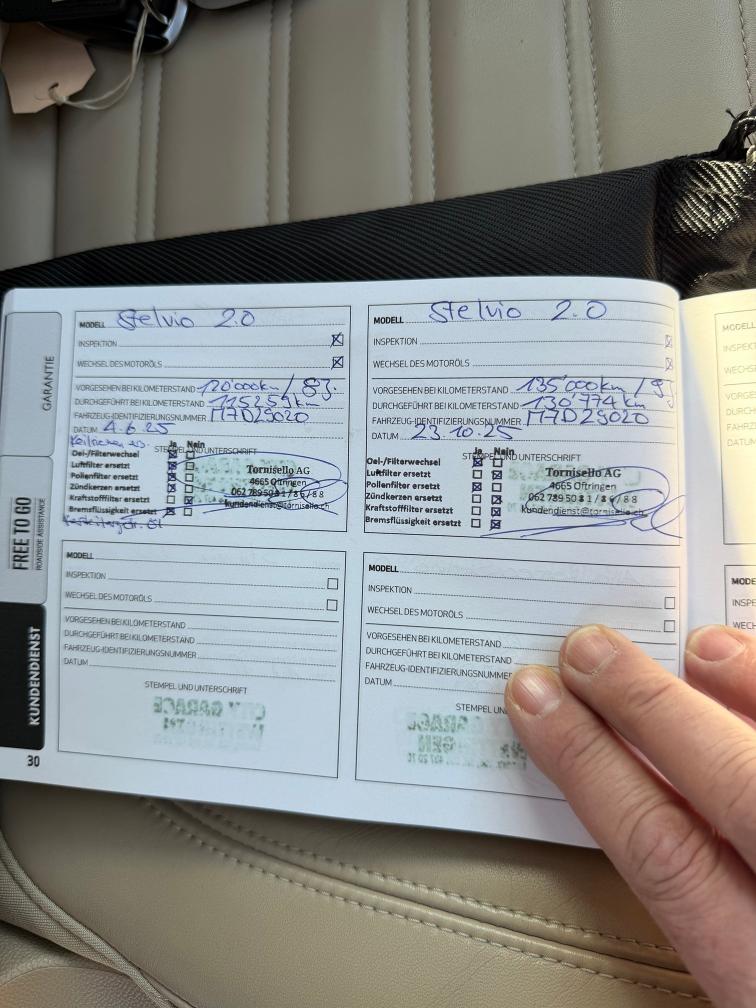 GARANTIE
FREE TO GO
ROADSIDE ASSISTANCE
KUNDENDIENST
30
MODELL Stelvio 2.0
INSPEKTION
WECHSEL DES MOTORÖLS
VORGESEHEN BEI KILOMETERSTAND 120'000km / 8J.
DURCHGEFÜHRT BEI KILOMETERSTAND 115259km
FAHRZEUG-IDENTIFIZIERUNGSNUMMER M7D29020
DATUM 4.6.25
STEMPEL UND UNTERSCHRIFT
Ja Nein
Oel-/Filterwechsel
Luftfilter ersetzt
Pollenfilter ersetzt
Zündkerzen ersetzt
Kraftstofffilter ersetzt
Bremsflüssigkeit ersetzt
Tornisello AG
4665 Oftringen
062 789 50 81 / 86 / 88
kundendienst@tornisello.ch
MODELL Stelvio 2.0
INSPEKTION
WECHSEL DES MOTORÖLS
VORGESEHEN BEI KILOMETERSTAND 135'000km / 9J
DURCHGEFÜHRT BEI KILOMETERSTAND 130'774 km
FAHRZEUG-IDENTIFIZIERUNGSNUMMER M7D29020
DATUM 23.10.25
STEMPEL UND UNTERSCHRIFT
Ja Nein
Oel-/Filterwechsel
Luftfilter ersetzt
Pollenfilter ersetzt
Zündkerzen ersetzt
Kraftstofffilter ersetzt
Bremsflüssigkeit ersetzt
Tornisello AG
4665 Oftringen
062 789 50 81 / 86 / 88
kundendienst@tornisello.ch
MODELL
INSPEKTION
WECHSEL DES MOTORÖLS
VORGESEHEN BEI KILOMETERSTAND
DURCHGEFÜHRT BEI KILOMETERSTAND
FAHRZEUG-IDENTIFIZIERUNGSNUMMER
DATUM
STEMPEL UND UNTERSCHRIFT
MODELL
INSPEKTION
WECHSEL DES MOTORÖLS
VORGESEHEN BEI KILOMETERSTAND
DURCHGEFÜHRT BEI KILOMETERSTAND
FAHRZEUG-IDENTIFIZIERUNGSNUMMER
DATUM
STEMPEL UN